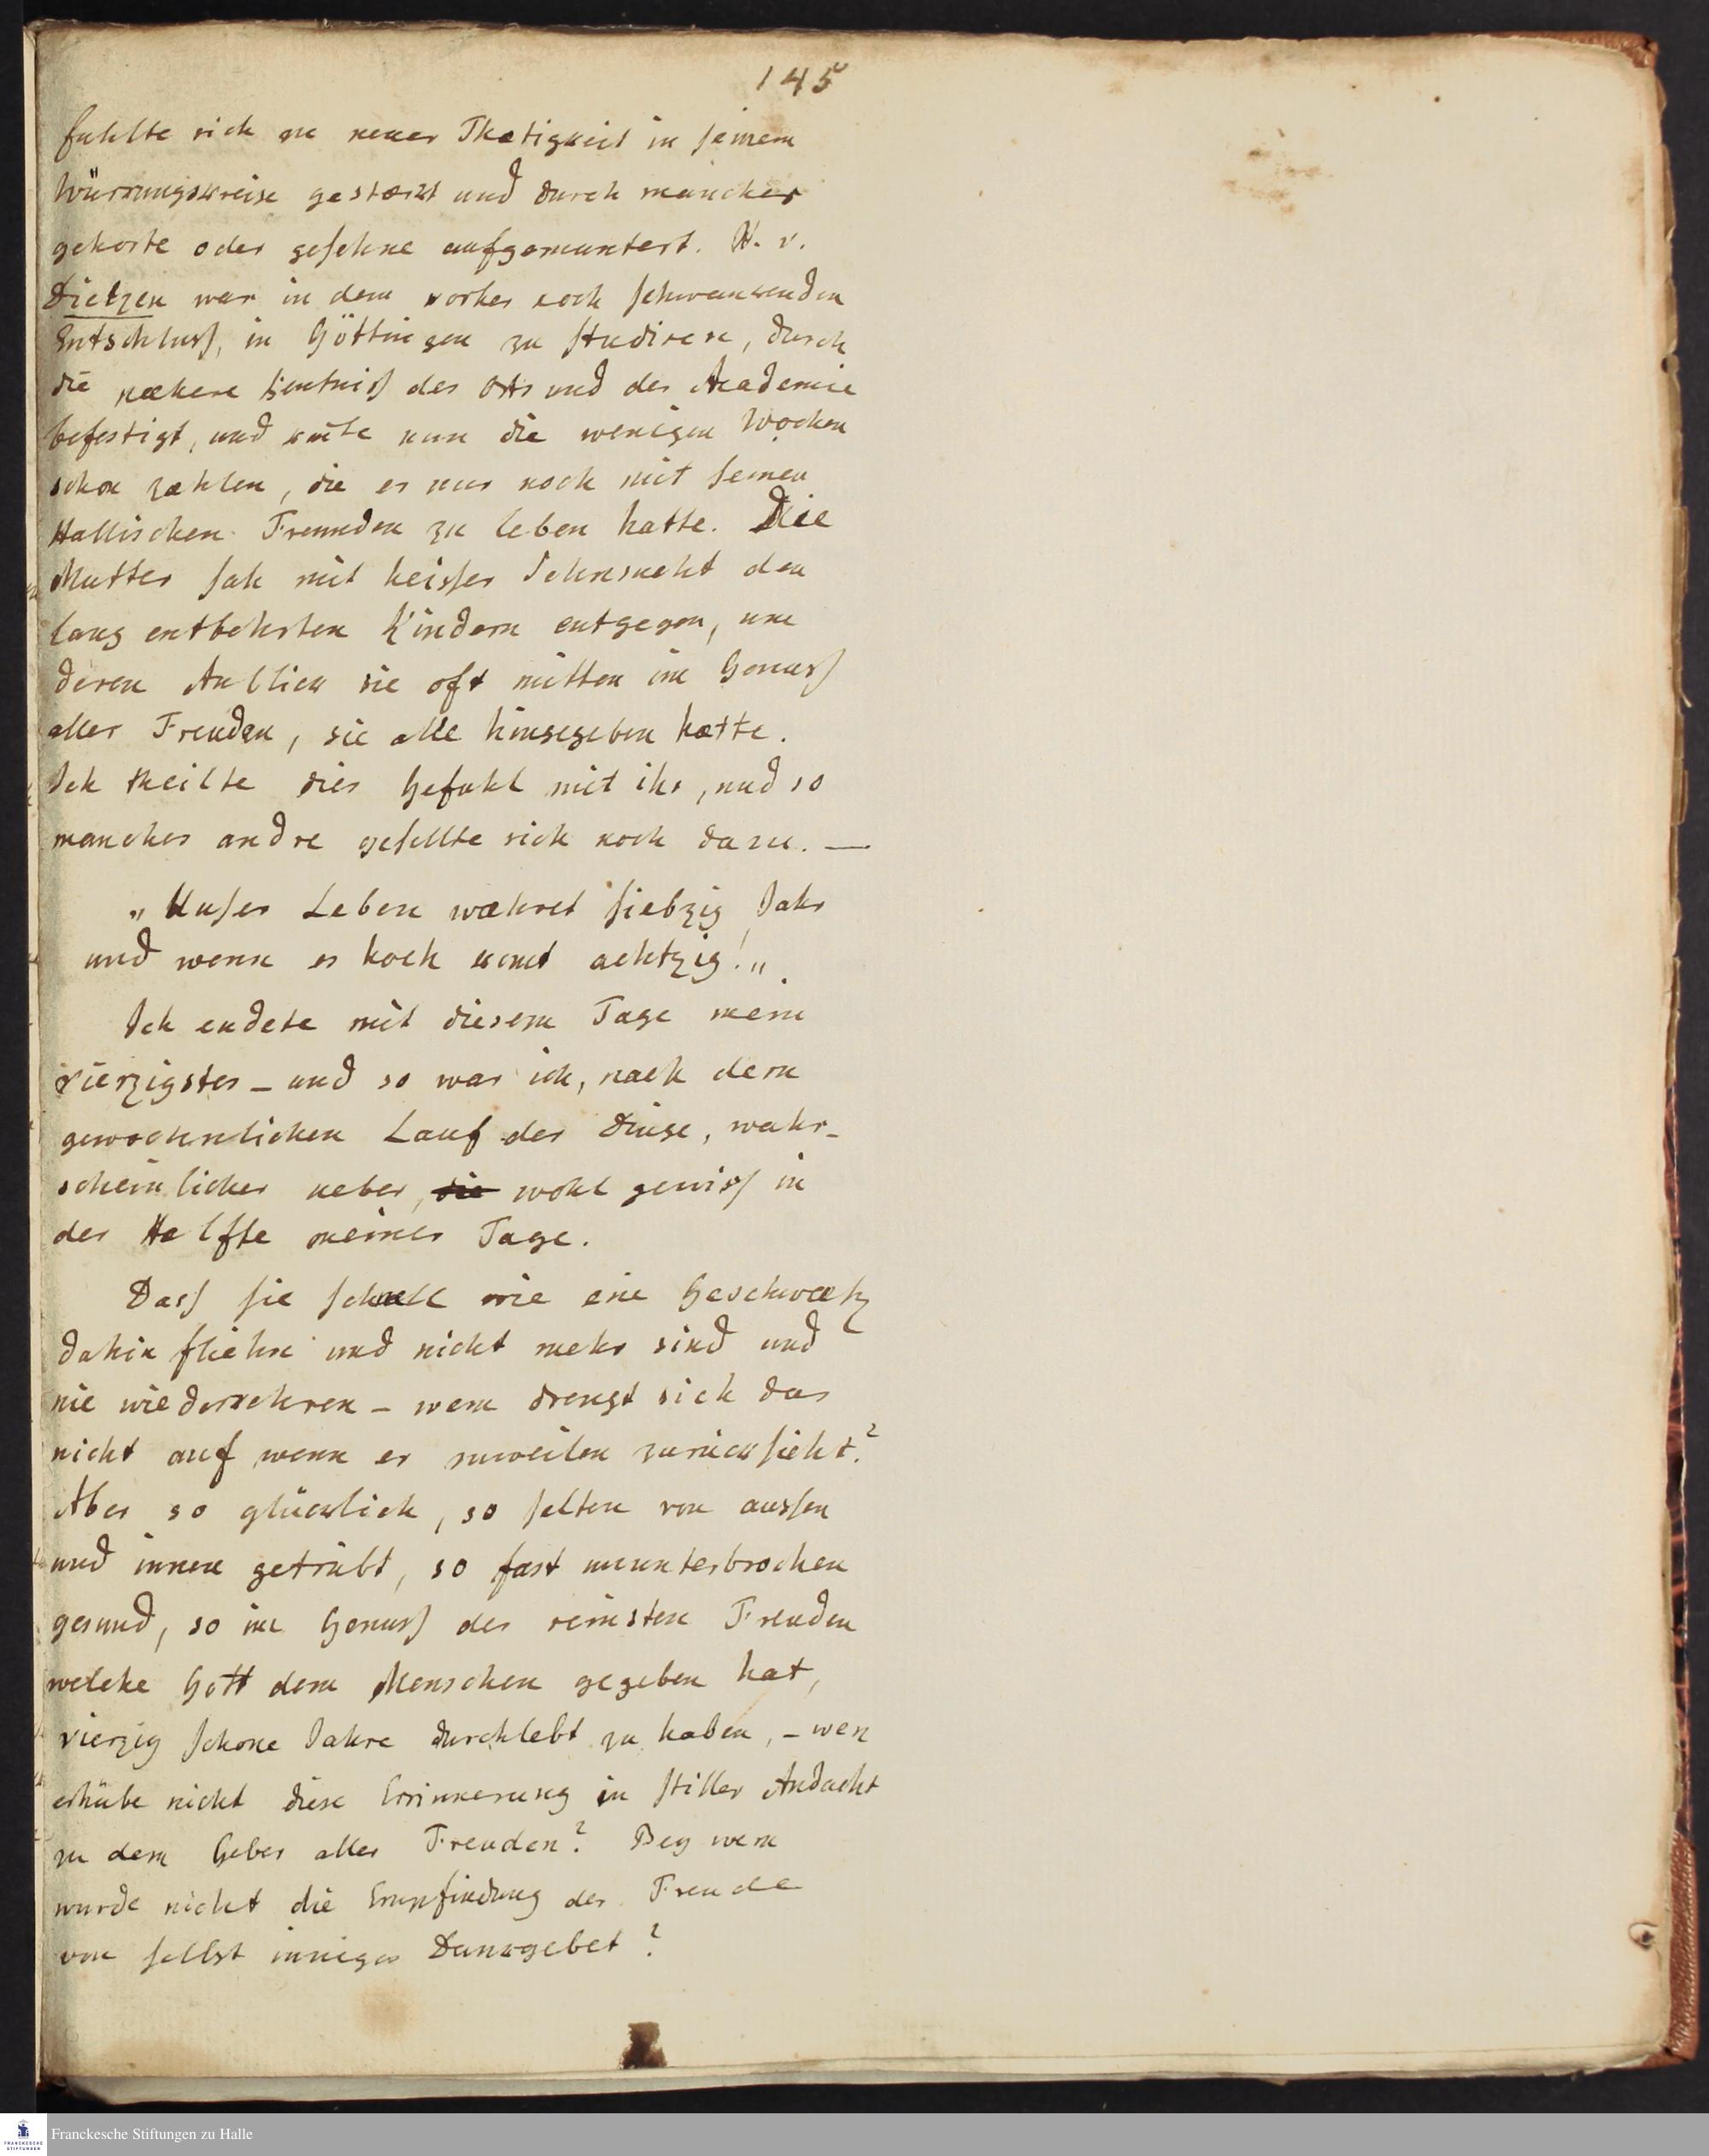 145
fuhlte sich zu neuer Thætigkeit in seinem
Würkungskreise gestærkt und durch manches
gehorte oder gesehne aufgemuntert. H. v.
Dietzen war in dem vorher noch schwankenden
Entschluss, in Göttingen zu studiren, durch
die næhere Kentniss des Orts und der Academie
befestigt, und mußte nun die wenigen Wochen
schon zæhlen, die er nur noch mit seinen
Hallischen Freunden zu leben hatte. Die
Mutter sah mit heisser Sehnsucht den
lang entbehrten Kindern entgegen, um
deren Anblick sie oft mitten im Genuss
aller Freuden, sie alle hingegeben hætte.
Ich theilte dies Gefuhl mit ihr, und so
manches andre gesellte sich noch dazu. —
„Unser Leben wæhret siebzig Jahr
und wenn es hoch komt achtzig!„
Ich endete mit diesem Tage mein
vierzigstes – und so war ich, nach dem
gewoehnlichen Lauf der Dinge, wahr-
scheinlicher ueber, die wohl gewiss in
der Helfte meiner Tage.
Dass sie schnell wie ein Geschwætz
dahin fliehn und nicht mehr sind und
nie wiederkehren – wem drengt sich das
nicht auf wenn er zuweilen zurücksieht?
Aber so glücklich, so selten von aussen
und innen getrübt, so fast ununterbrochen
gesund, so im Genuss der reinsten Freuden
welche Gott dem Menschen gegeben hat,
vierzig schone Jahre durchlebt zu haben, – wen
erhübe nicht diese Erinnerung in stiller Andacht
zu dem Geber aller Freuden? Bey wem
wurde nicht die Empfindung der Freude
von selbst inniges Dankgebet?
Franckesche Stiftungen zu Halle
FRANCKESCHE
STIFTUNGEN